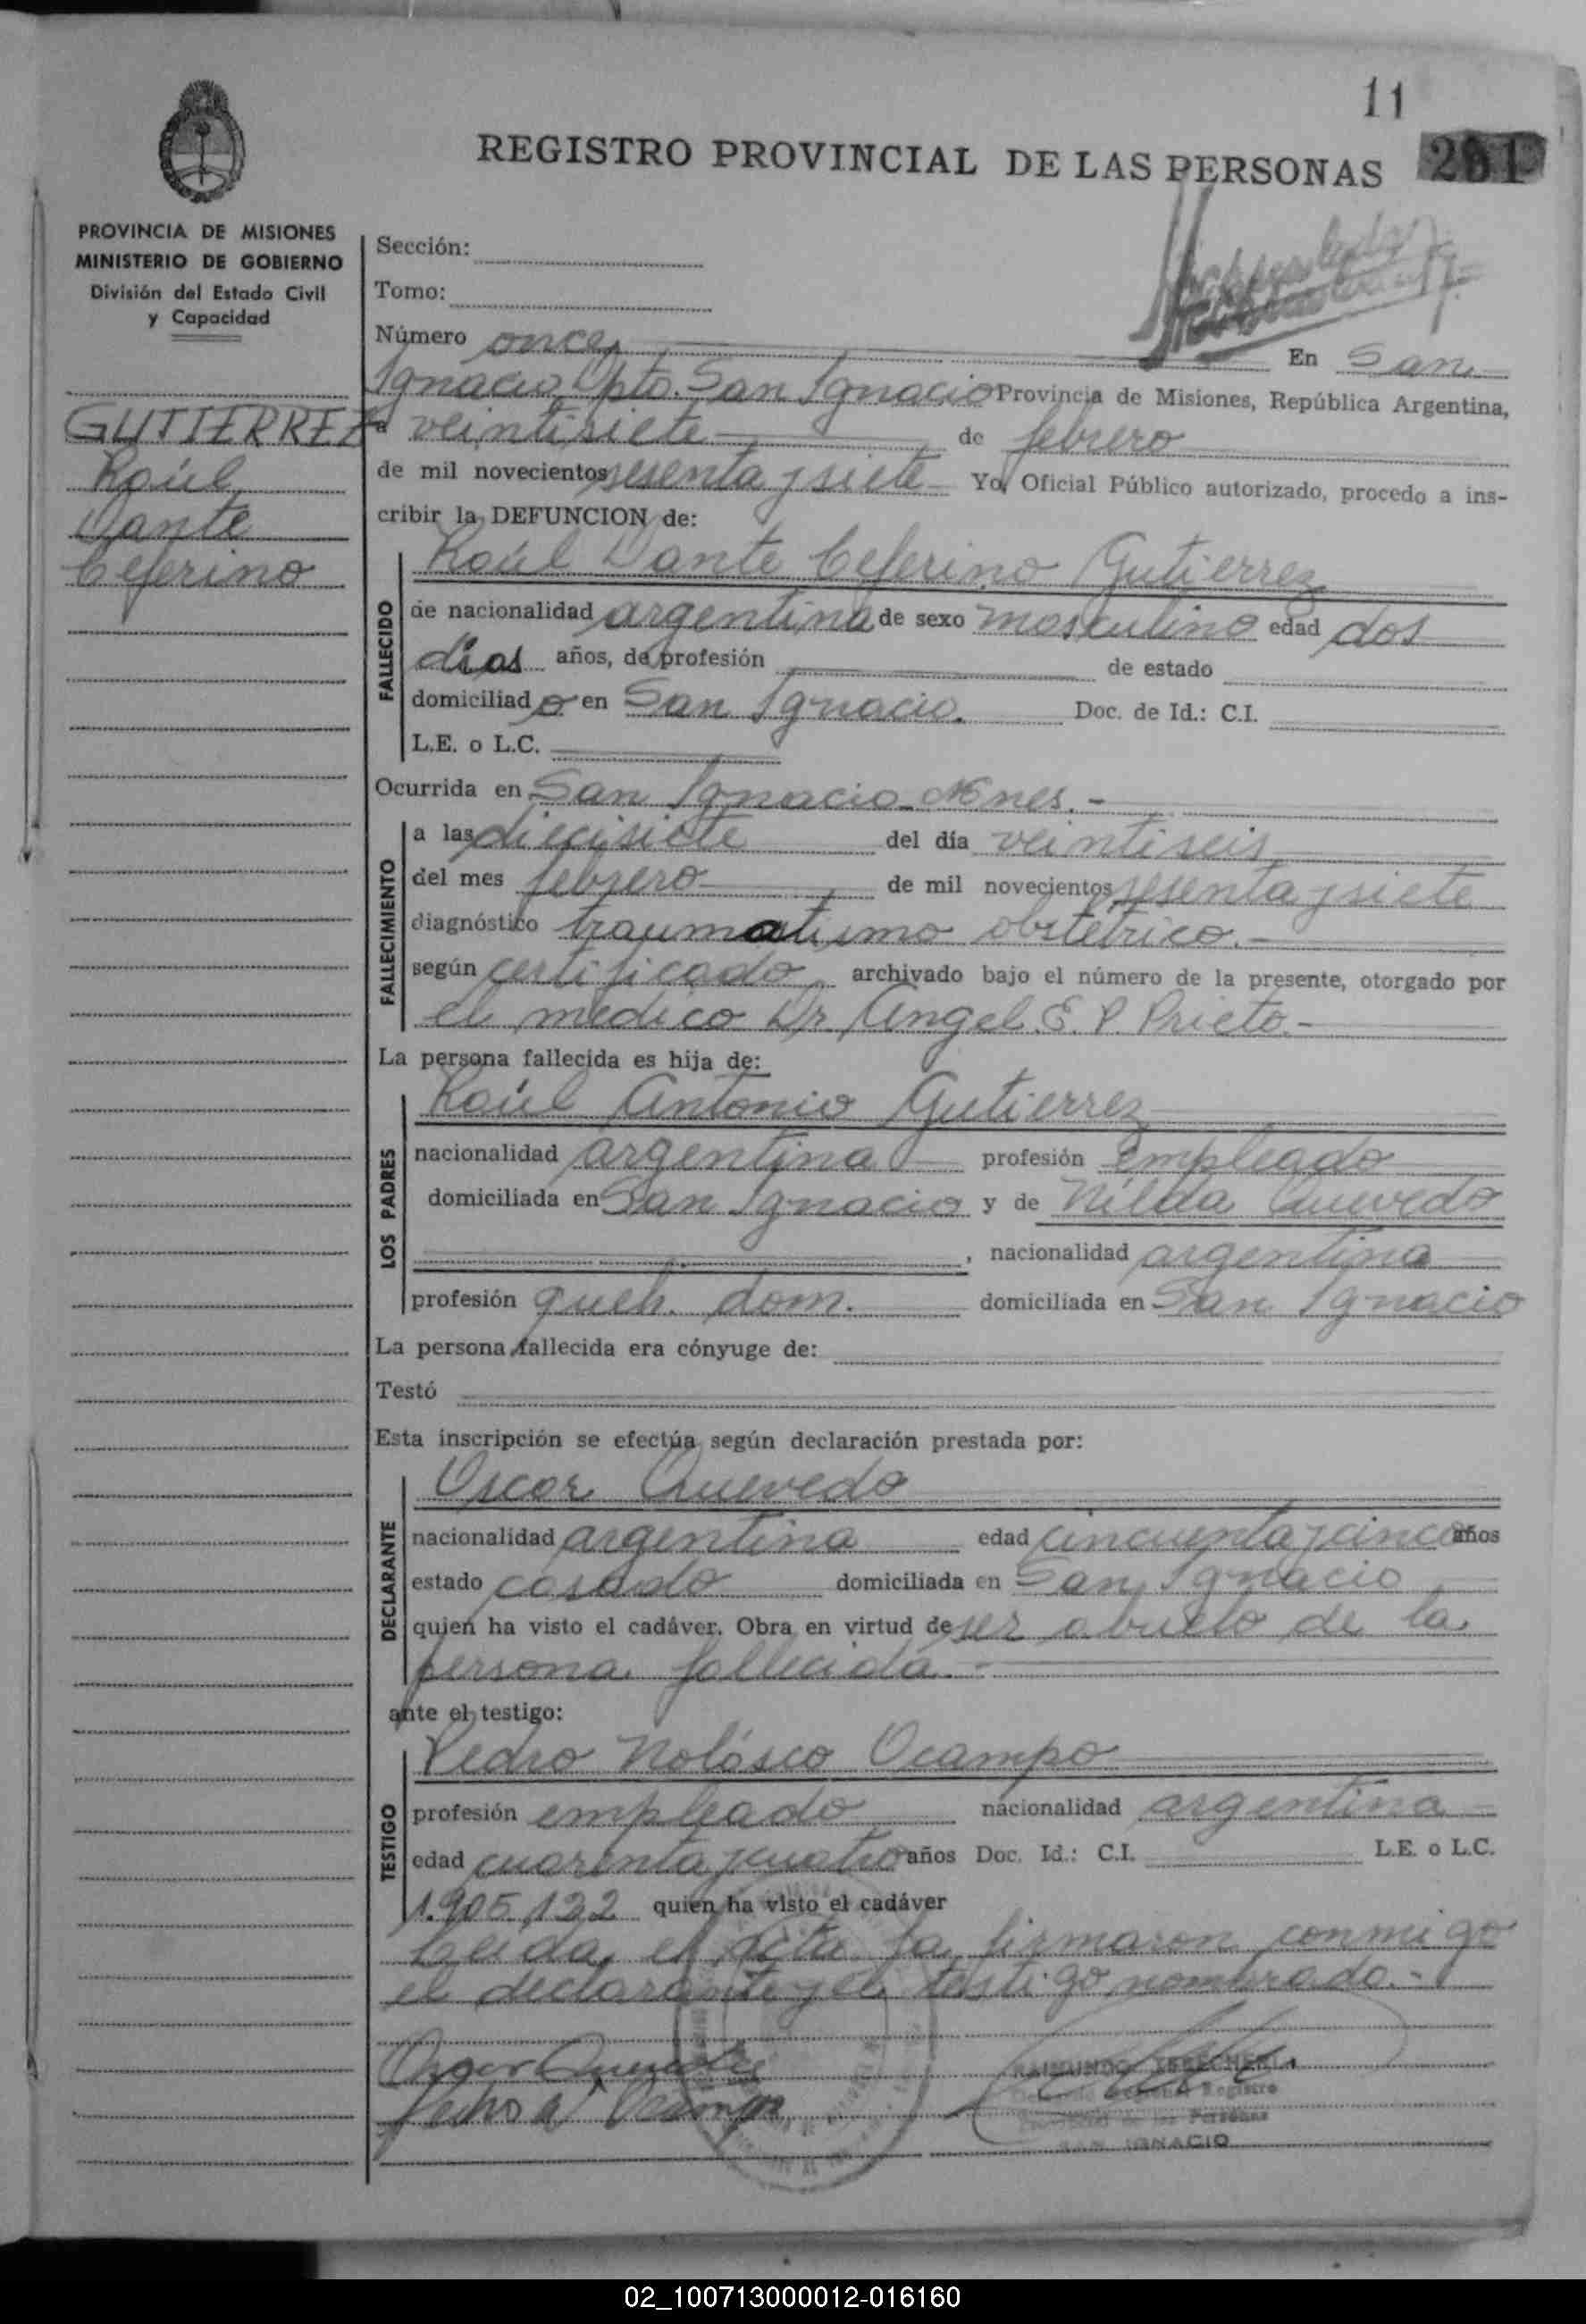 11
REGISTRO PROVINCIAL DE LAS PERSONAS 201
PROVINCIA DE MISIONES
MINISTERIO DE GOBIERNO
División del Estado Civil
y Capacidad
GUTIERREZ
Raúl
Dante
Ceferino
Sección:
Tomo:
Número once En San
Ignacio Dpto. San Ignacio Provincia de Misiones, República Argentina,
a veintisiete de febrero
de mil novecientos sesenta y siete Yo, Oficial Público autorizado, procedo a ins-
cribir la DEFUNCION de:
Raúl Dante Ceferino Gutierrez
FALLECIDO
de nacionalidad argentina de sexo masculino edad dos
dias años, de profesión de estado
domiciliado en San Ignacio. Doc. de Id.: C.I.
L.E. o L.C.
Ocurrida en San Ignacio Mnes.-
FALLECIMIENTO
a las diecisiete del día veintiseis
del mes febrero de mil novecientos sesenta y siete
diagnóstico traumatismo obstétrico.-
según certificado archivado bajo el número de la presente, otorgado por
el médico Dr. Angel E. P. Prieto.-
La persona fallecida es hija de:
LOS PADRES
Raúl Antonio Gutierrez
nacionalidad argentina profesión empleado
domiciliada en San Ignacio y de Nilda Quevedo
, nacionalidad argentina
profesión queh. dom. domiciliada en San Ignacio
La persona fallecida era cónyuge de:
Testó
Esta inscripción se efectúa según declaración prestada por:
DECLARANTE
Oscar Quevedo
nacionalidad argentina edad cincuenta y cinco años
estado casado domiciliada en San Ignacio
quien ha visto el cadáver. Obra en virtud de ser abuelo de la
persona fallecida.-
ante el testigo:
TESTIGO
Pedro Nolasco Ocampo
profesión empleado nacionalidad argentina
edad cuarenta y cuatro años Doc. Id.: C.I. L.E. o L.C.
1.905.122 quien ha visto el cadáver
Leida el acta la firmaron conmigo
el declarante y el testigo nombrado.-
Oscar Quevedo
Pedro N Ocampo
RAIMUNDO
Registro
de las Personas
SAN IGNACIO
02_100713000012-016160